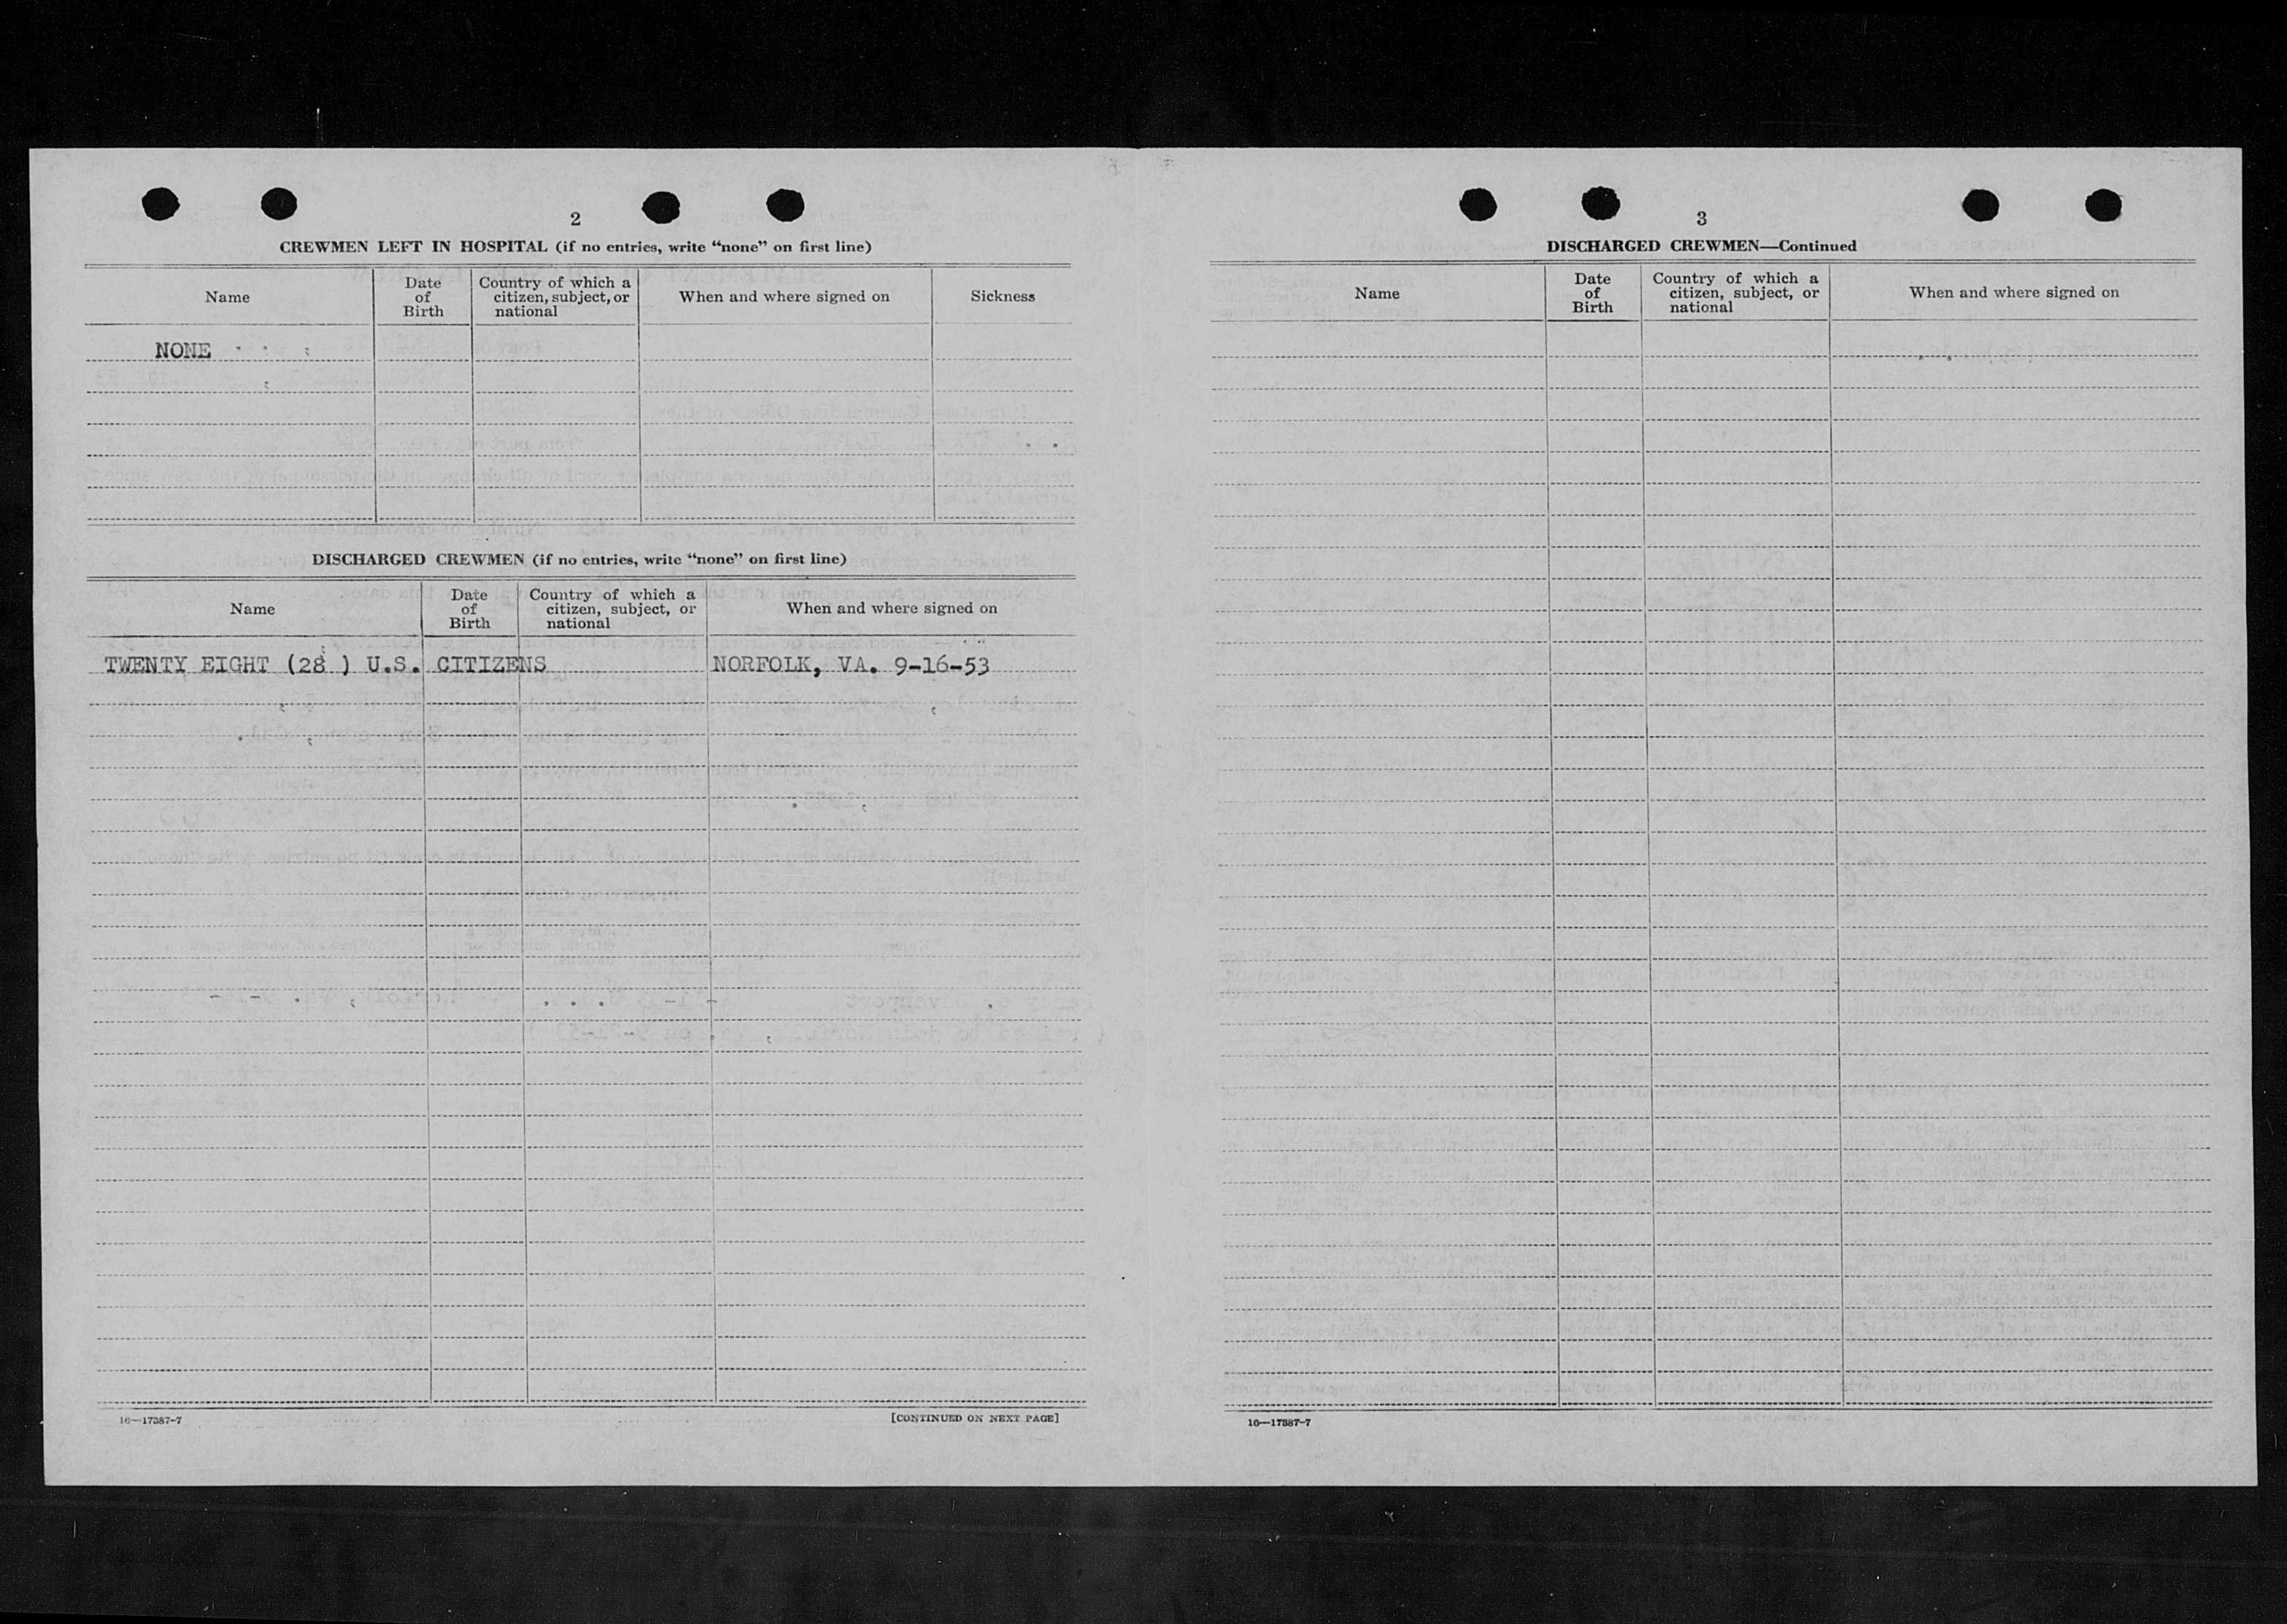 2
CREWMEN LEFT IN HOSPITAL (if no entries, write “none” on first line)
Name
Date of Birth
Country of which a citizen, subject, or national
When and where signed on
Sickness
NONE
DISCHARGED CREWMEN (if no entries, write “none” on first line)
Name
Date of Birth
Country of which a citizen, subject, or national
When and where signed on
TWENTY EIGHT (28 ) U.S. CITIZENS NORFOLK, VA. 9-16-53
16—17387-7
[CONTINUED ON NEXT PAGE]
3
DISCHARGED CREWMEN—Continued
Name
Date of Birth
Country of which a citizen, subject, or national
When and where signed on
16—17387-7